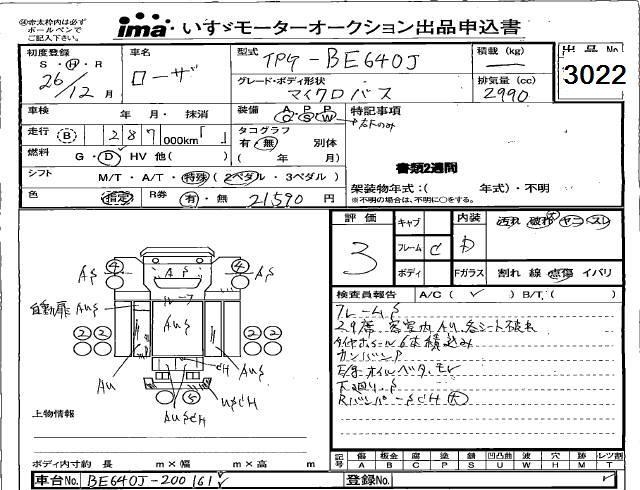 ㊟赤太枠内は必ず
ボールペンで
ご記入下さい。
ima・いすゞモーターオークション出品申込書
初度登録
S・H・R
26/12月
車名
ローザ
型式
TPG-BE640J
積載(kg)
出品No
3022
グレード・ボディ形状
マイクロバス
排気量(cc)
2990
車検
年 月・抹消
装備
A P P
C S W
特記事項
右下のみ
走行
B
287
000km「 」
タコグラフ
有・無 別体
( 年 月)
燃料
G・D・HV 他( )
書類2週間
シフト
M/T・A/T・特殊(2ペダル・3ペダル)
架装物年式:( 年式)・不明
※不明の場合は、不明に○をする。
色
指定
R券
有・無 21590 円
評価
3
キャブ
フレーム C
ボディ
内装
D
汚れ 破れ ヤニ スレ
Fガラス
割れ 線 点傷 イバリ
検査員報告
A/C( ✓ ) B/T.( )
フレームS
29席 客室内AU 各シート破れ
タイヤホイール6本積込み
カンバンP
オイルベタ、モレ
下廻りS
RバンパーSCH 大
④ AS
AS
④ AS
ルーフ
自動扉 AUS
AUS
② ②
② ②
AU
AUS
CH
USCH
⑤
ASCH
上物情報
ボディ内寸約 長 m×幅 m×高 m
記号
傷 板金 腐 塗 錆 凹凸曲 波 穴 無 レンズ割
A B C P S U W H M T
車台No.
BE640J-200161
登録No.